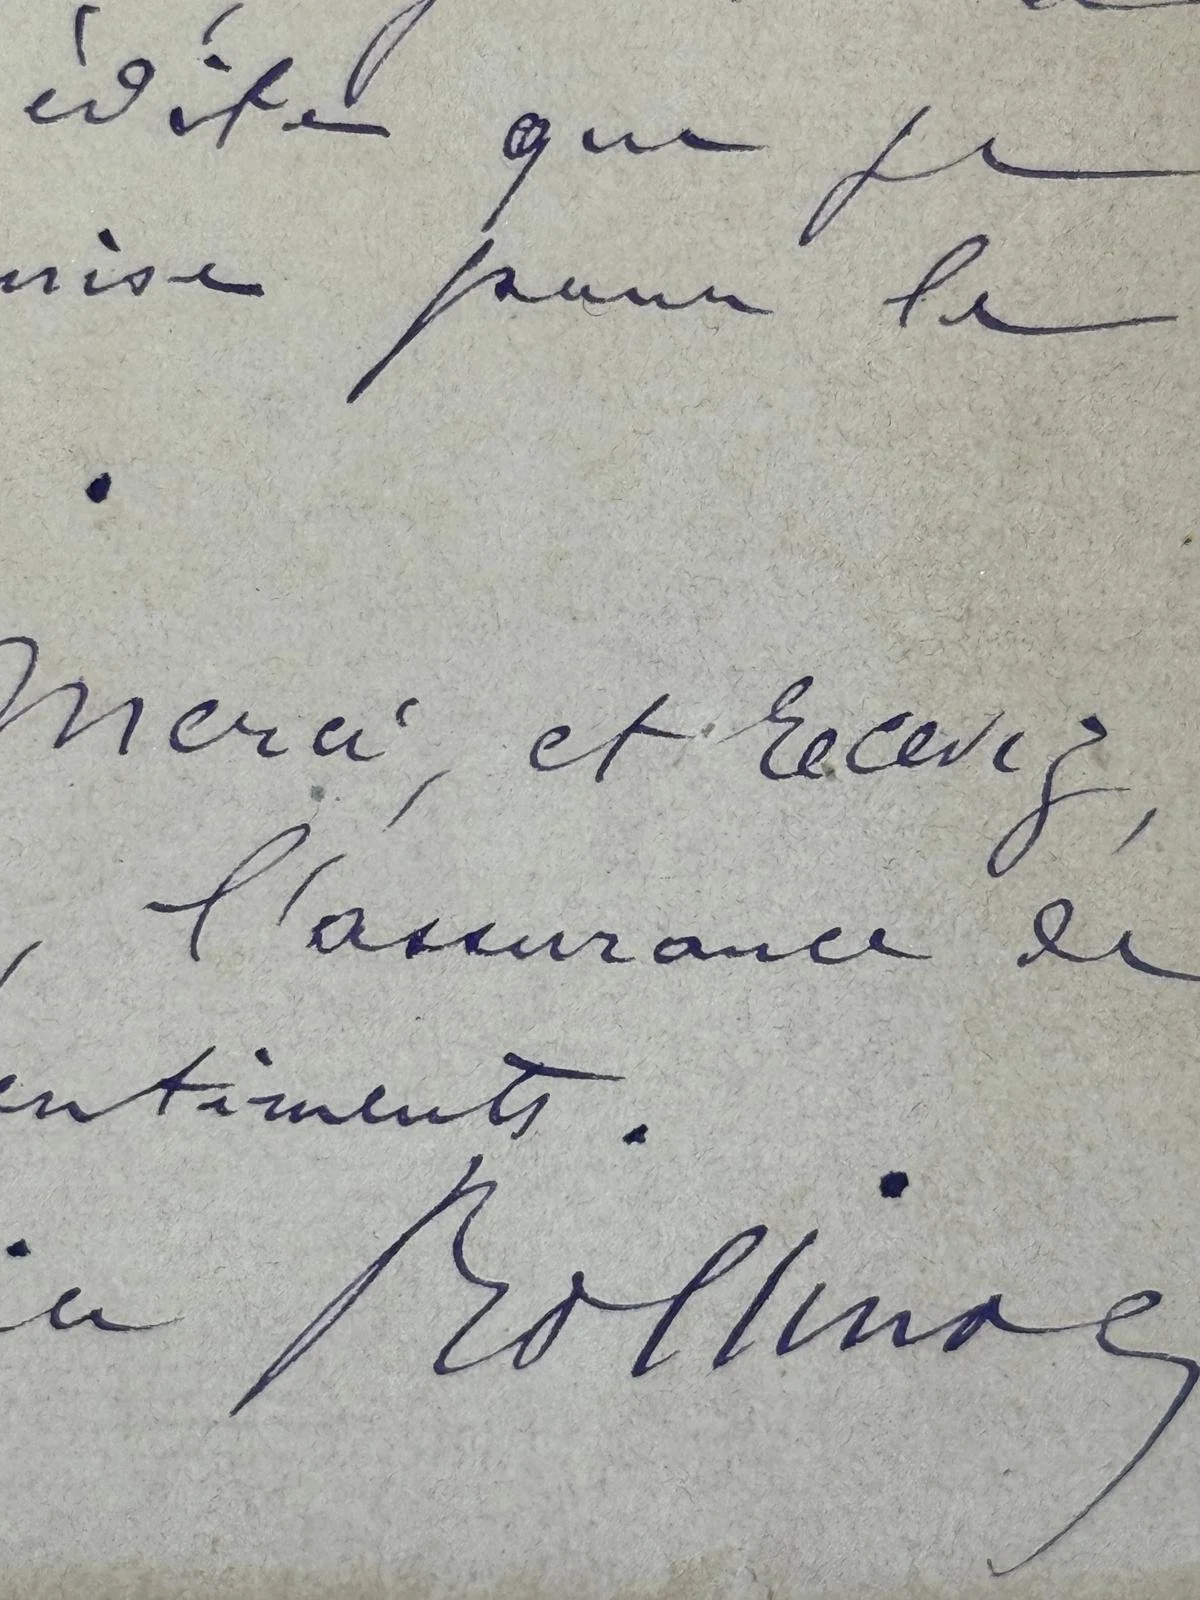 édite que je
mise pour le
.
Merci, et recevez,
, l'assurance de
entiments.
Rollinat